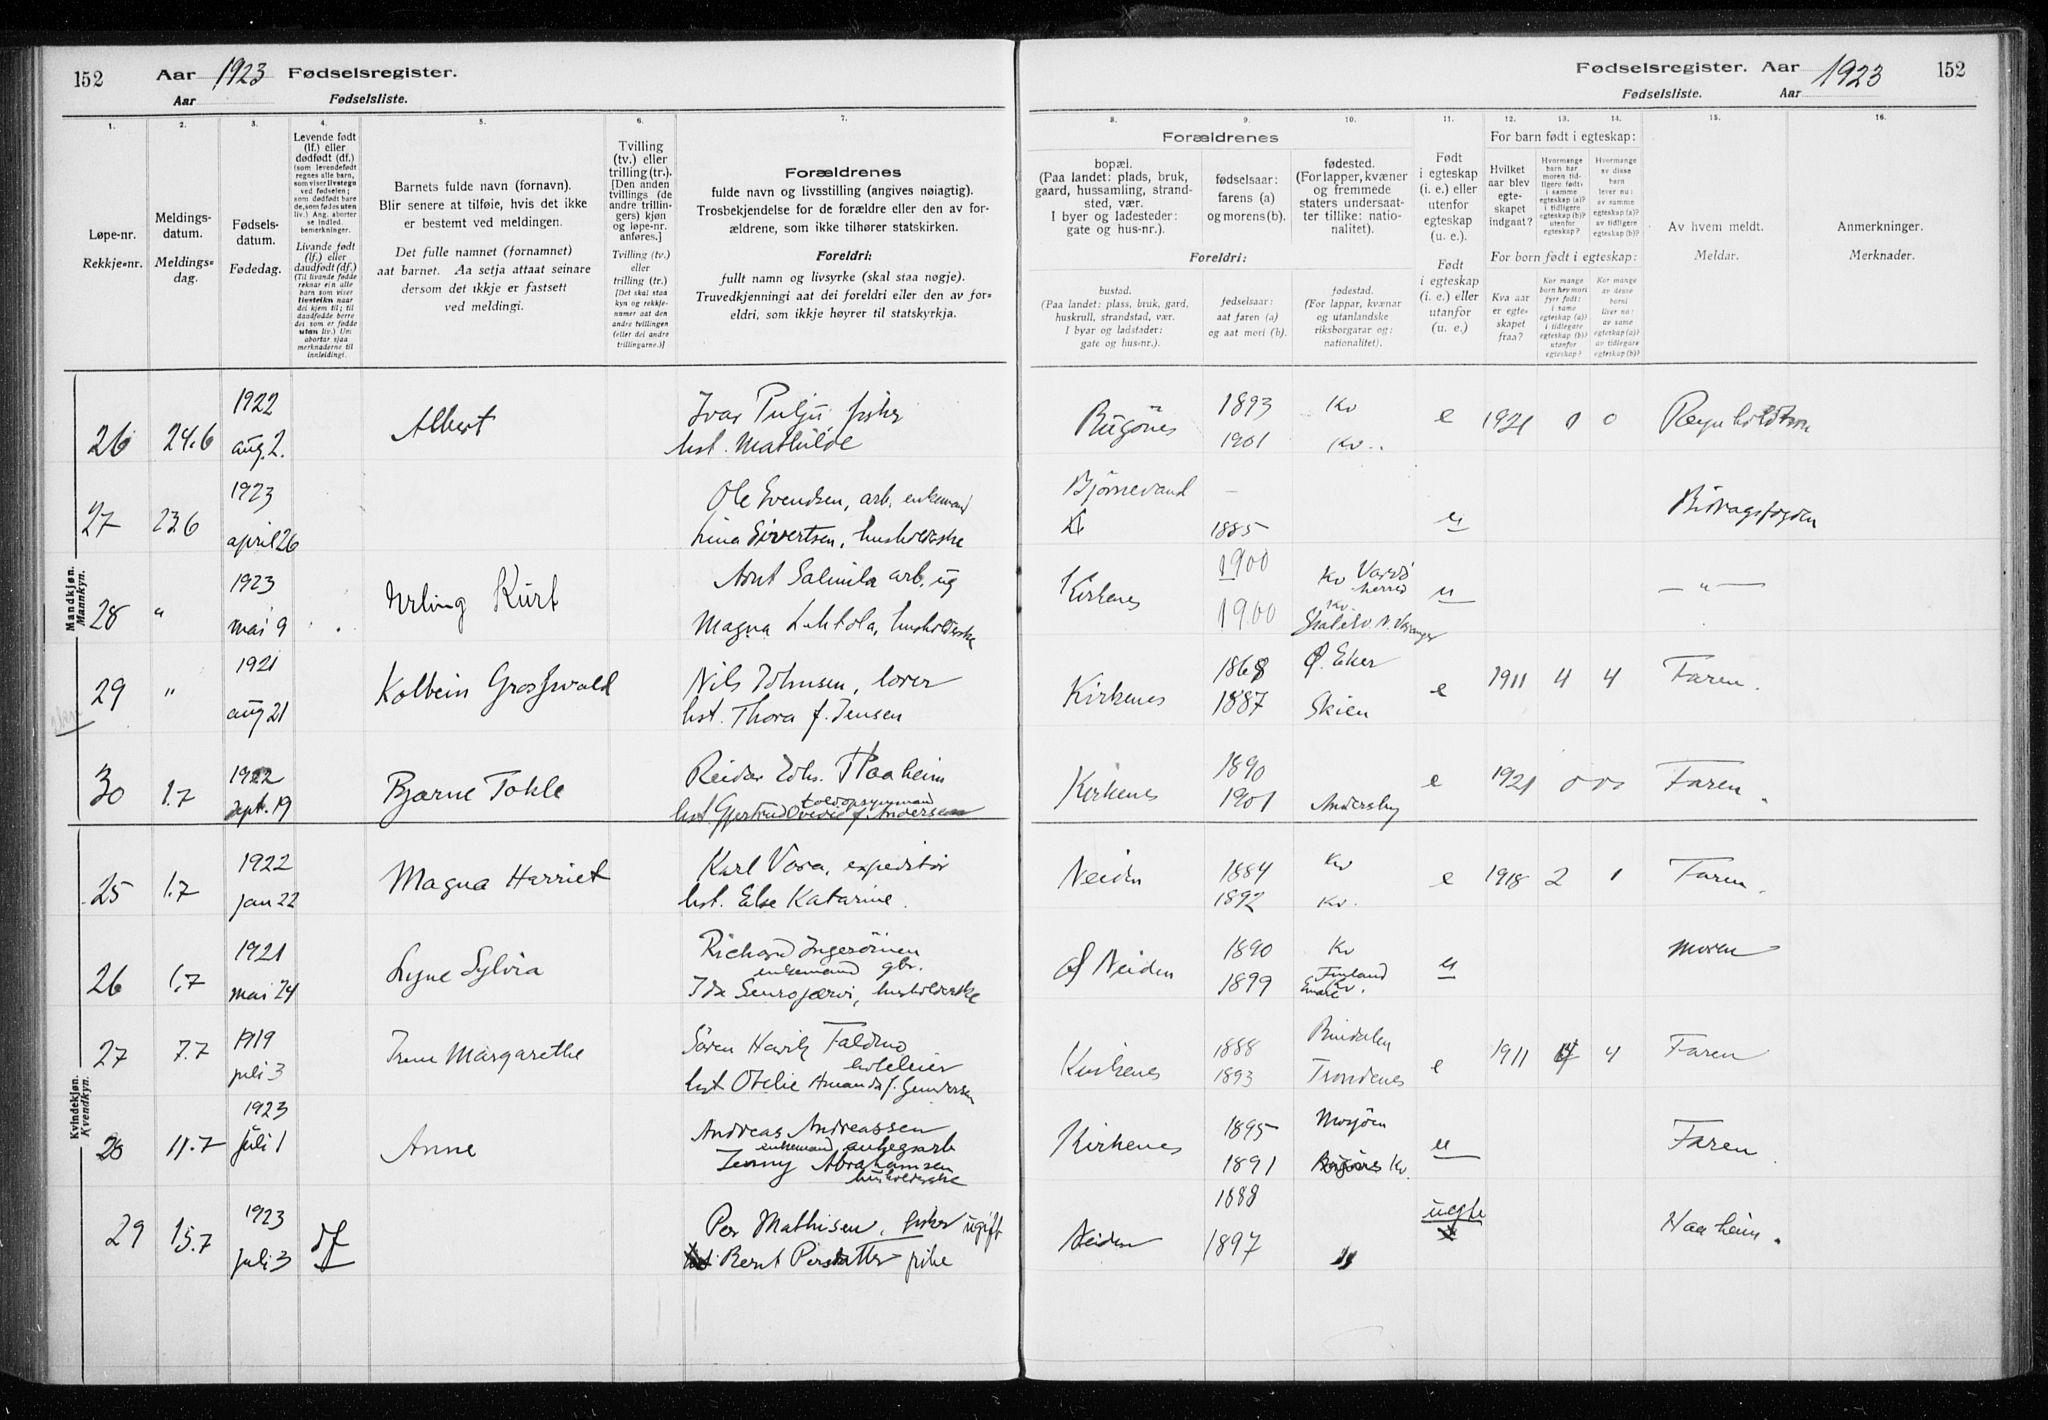 152 Aar 1923 Fødselsregister.
Aar Fødselsliste.
Fødselsregister. Aar 1923 152
Fødselsliste. Aar
1. 2. 3. 4. 5. 6. 7. 8. 9. 10. 11. 12. 13. 14. 15. 16.
Løpe-nr.
Rekkje-nr.
Meldings-
datum.
Meldings-
dag.
Fødsels-
datum.
Fødedag.
Levende født
(lf.) eller
dødfødt (df.)
(som levendefødt
regnes alle barn,
som viser livstegn
ved fødselen;
som dødfødt bare
de, som fødes uten
liv.) Ang. aborter
se indled.
bemerkninger.
Livande født
(lf.) eller
daudfødt (df.)
(Til livande fødde
reknar ein alle
born som viser
livsteikn naar
dei kjem til; til
daudfødde berre
dei som er fødde
utan liv.) Um
abortar sjaa
merknaderne til
innleidingi.
Barnets fulde navn (fornavn).
Blir senere at tilføie, hvis det ikke
er bestemt ved meldingen.
Det fulle namnet (fornamnet)
aat barnet. Aa setja attaat seinare
dersom det ikkje er fastsett
ved meldingi.
Tvilling
(tv.) eller
trilling (tr.).
[Den anden
tvillings (de
andre trillin-
gers) kjøn
og løpe-nr.
anføres.]
Tvilling (tv.)
eller
trilling (tr.)
[Det skal staa
kyn og rekkje-
numer aat den
andre tvillingen
(eller dei andre
trillingarne.)]
Forældrenes
fulde navn og livsstilling (angives nøiagtig).
Trosbekjendelse for de forældre eller den av for-
ældrene, som ikke tilhører statskirken.
Foreldri:
fullt namn og livsyrke (skal staa nøgje).
Truvedkjenningi aat dei foreldri eller den av for-
eldri, som ikkje høyrer til statskyrkja.
Forældrenes
bopæl.
(Paa landet: plads, bruk,
gaard, hussamling, strand-
sted, vær.
I byer og ladesteder:
gate og hus-nr.).
fødselsaar:
farens (a)
og morens (b).
fødested.
(For lapper, kvæner
og fremmede
staters undersaat-
ter tillike: natio-
nalitet).
Foreldri:
bustad.
(Paa landet: plass, bruk, gard,
huskrull, strandstad, vær.
I byar og ladstader:
gate og hus-nr.).
fødselsaar:
aat faren (a)
og aat mori (b).
fødestad.
(For lappar, kvænar
og utanlandske
riksborgarar og:
nationalitet).
Født
i egteskap
(i. e.) eller
utenfor
egteskap
(u. e.).
Født
i egteskap
(i. e.) eller
utanfor
(u. e.)
For barn født i egteskap:
Hvilket
aar blev
egte-
skapet
indgaat?
Hvormange
barn har
moren tid-
ligere født:
i samme
egteskap (a)?
i tidligere
egteskap (b)?
utenfor
egteskap?
Hvormange
av disse
barn
lever nu:
av samme
egteskap (a)?
av tidligere
egteskap (b)?
For born født i egteskap:
Kva aar
er egte-
skapet
fraa?
Kor mange
born hev mori
fyrr født:
i same
egteskap (a)?
i tidlegare
egteskap (b)?
utanfor
egteskap?
Kor mange
av desse
borni
liver nu:
av same
egteskap (a)?
av tidlegare
egteskap (b)?
Av hvem meldt.
Meldar.
Anmerkninger.
Merknader.
Mandkjøn.
Mannkyn.
26 24.6 1922 aug. 2. Albert
Ivar Pulju fisker
hst. Mathilde
Bugönes 1893 1901 Kv Kv. e 1921 0 0
27 23.6 1923 april 26
Ole Svendsen, arb. enkemand
Lina Sivertsen, husholderske
Bjørnevand — 1885 u Bidragsfogden
28 " 1923 mai 9 Erling Kurt
Arnt Salmila arb. ug
Magna Lehtola, husholderske
Kirkenes 1900 1900 Kv Vardö herred Kv. N. Varanger u — " —
29 " 1921 aug 21 Kolbein Grosswald
Nils Johnsen, lærer
hst. Thora f. Jensen
Kirkenes 1868 1887 Ø. Eker Skien e 1911 4 4 Faren.
30 1.7 1922 sept. 19 Bjarne Tohle
Reidar Johs. Haaheim
toldopsynmand
hst. Gjertrud Ovedie f. Andersen
Kirkenes 1890 1901 Andersby e 1921 0 00 Faren.
Kvindekjøn.
Kvendkyn.
25 1.7 1922 jan 22 Magna Harriet
Karl Vara, expeditör
hst. Else Katarine.
Neiden 1884 1892 Kv Kv. e 1918 2 1 Faren.
26 1.7 1921 mai 24 Lyne Sylvia
Richard Ingeröinen
enkemand gbr.
Ida Seurojærvi, husholderske
Ø Neiden 1890 1899 Kv Finland Enare Kv. u moren
27 7.7 1919 juli 3 Irene Margarethe
Sören Henrik Faldmo
hoteleier
hst Otelie Amanda f. Gundersen
Kirkenes 1888 1893 Bindalen Trondenes e 1911 4 4 Faren
28 11.7 1923 juli 1 Anne
Andreas Andreassen
enkemand anlegsarb
Jenny Abrahamsen
husholderske
Kirkenes 1895 1891 Mosjöen Bugönes Kv. u Faren.
29 15.7 1923 juli 3 df
Per Mathisen, fisker ugift
Bernt Persdatter pike
Neiden 1888 1897 uegte Haaheim.